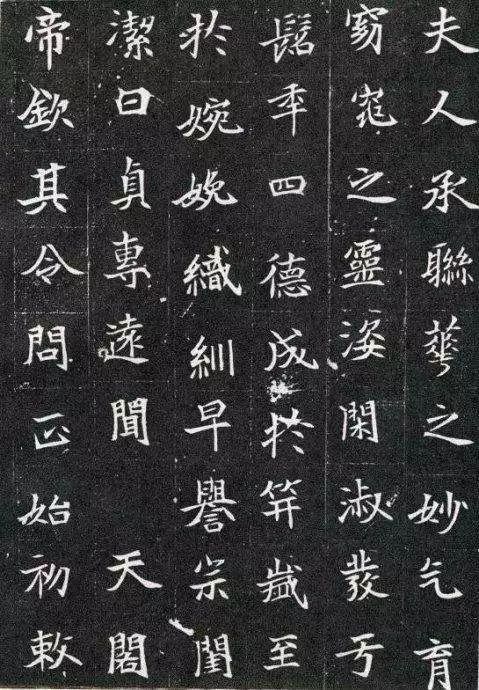 夫人承聯華之妙气育
窈窕之靈姿閑淑發亐
髫秊四德成扵笄歲至
扵婉娩織紃早譽宗闈
潔曰貞專遠聞天閣
帝欽其令問正始初敕